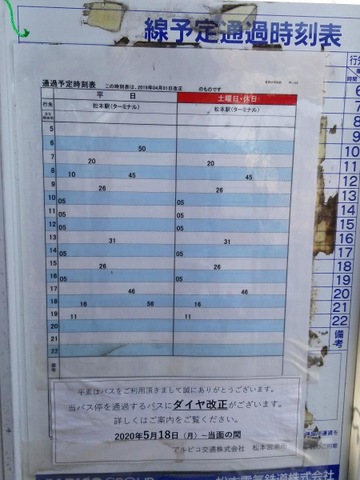 線予定通過時刻表
通過予定時刻表 この時刻表は、2019年04月01日改正 のものです
行先 平 日 土曜日・休日
松本駅(ターミナル) 松本駅(ターミナル)
5
6 50
7 20 20
8 10 45 45
9 26 26
10 05 05
11 05 05
12 05 05
13 31 31
14 05 05
15 26 26
16 05 05
17 46 46
18 16 56 16
19 11 11
20
21
22
備考
行先
時間
6
7
8
9
10
11
12
13
14
15
16
17
18
19
20
21
22
備考
平素はバスをご利用頂きまして誠にありがとうございます。
当バス停を通過するバスにダイヤ改正がございます。
詳しくはご案内をご覧ください。
2020年5月18日(月)~当面の間
アルピコ交通株式会社 松本営業所
松本電気鉄道株式会社